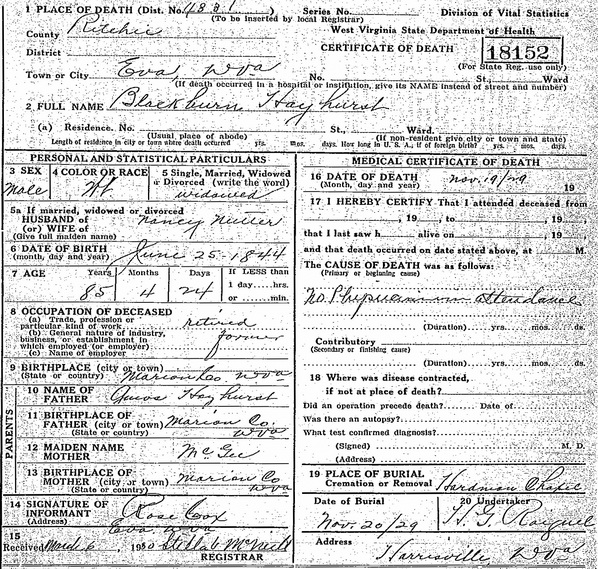 1 PLACE OF DEATH (Dist. No. 4881) Series No.
Division of Vital Statistics
(To be inserted by local Registrar)
County Ritchie
West Virginia State Department of Health
District
CERTIFICATE OF DEATH
18152
(For State Reg. use only)
Town or City Eva, Wva No. St., Ward
(If death occurred in a hospital or institution, give its NAME instead of street and number)
2 FULL NAME Blackburn Hayhurst
(a) Residence. No. St., Ward.
(Usual place of abode) (If non-resident give city or town and state)
Length of residence in city or town where death occurred yrs. mos. days. How long in U. S. A., if of foreign birth? yrs. mos. days.
PERSONAL AND STATISTICAL PARTICULARS
3 SEX
Male
4 COLOR OR RACE
Wh
5 Single, Married, Widowed
or Divorced (write the word)
widowed
5a If married, widowed or divorced
HUSBAND of
(or) WIFE of
Nancy
(Give full maiden name)
6 DATE OF BIRTH
(month, day and year)
June 25-1844
7 AGE Years Months Days
85 4 24
If LESS than
1 day....hrs.
or.......min.
8 OCCUPATION OF DECEASED
(a) Trade, profession or
particular kind of work
retired
(b) General nature of industry,
business, or establishment in
which employed (or employer)
farmer
(c) Name of employer
9 BIRTHPLACE (city or town)
(State or country)
Marion Co Wva
PARENTS
10 NAME OF
FATHER
Hayhurst
11 BIRTHPLACE OF
FATHER (city or town)
(State or country)
Marion Co.
Wva
12 MAIDEN NAME
MOTHER
McGee
13 BIRTHPLACE OF
MOTHER (city or town)
(State or country)
Marion Co
Wva
14 SIGNATURE OF
INFORMANT
Rose Cox
(Address)
Eva Wva
15
Received March 6, 1930 Stella McNeill
REGISTRAR
MEDICAL CERTIFICATE OF DEATH
16 DATE OF DEATH
(Month, day and year)
Nov. 19/29 19
17 I HEREBY CERTIFY That I attended deceased from
, 19 , to , 19 ,
that I last saw h alive on , 19 ,
and that death occurred on date stated above, at M.
The CAUSE OF DEATH was as follows:
(Primary or beginning cause)
No attendance
(Duration) yrs. mos. ds.
Contributory
(Secondary or finishing cause)
(Duration) yrs. mos. ds.
18 Where was disease contracted,
if not at place of death?
Did an operation precede death? Date of
Was there an autopsy?
What test confirmed diagnosis?
(Signed) M. D.
(Address)
19 PLACE OF BURIAL
Cremation or Removal
Hardman Chapel
Date of Burial
Nov. 20/29
20 Undertaker
H. G.
Address
Harrisville, Wva